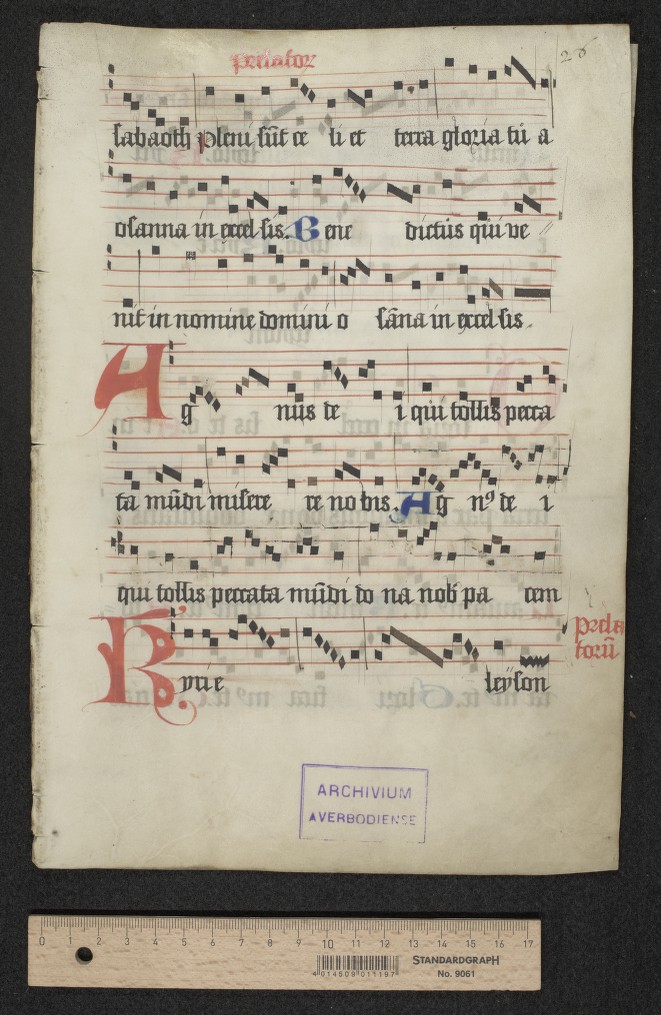 26
sabaoth Pleni sūt ce li et terra gloria tu a
osanna in excel sis. Bene dictus qui ve
nit in nomine domini o sāna in excel sis.
Ag nus de i qui tollis pecca
ta mūdi misere re no bis. Ag n⁹ de i
qui tollis peccata mūdi do na nob pa cem
Kyrie leyson
ARCHIVIUM
AVERBODIENSE
0 1 2 3 4 5 6 7 8 9 10 11 12 13 14 15 16 17
4 014509 011197
STANDARDGRAPH
No. 9061